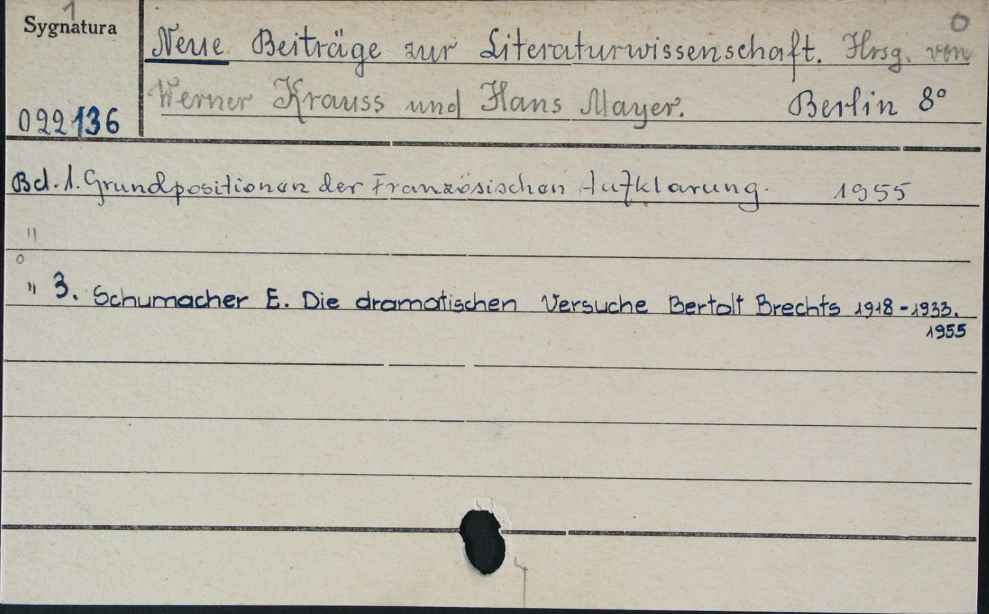 1
Sygnatura
0
Neue Beiträge zur Literaturwissenschaft. Hrsg. von
Werner Krauss und Hans Mayer. Berlin 8°
022136
Bd. 1. Grundpositionen der Französischen Aufklarung. 1955
"
0
" 3. Schumacher E. Die dramatischen Versuche Bertolt Brechts 1918-1933.
1955